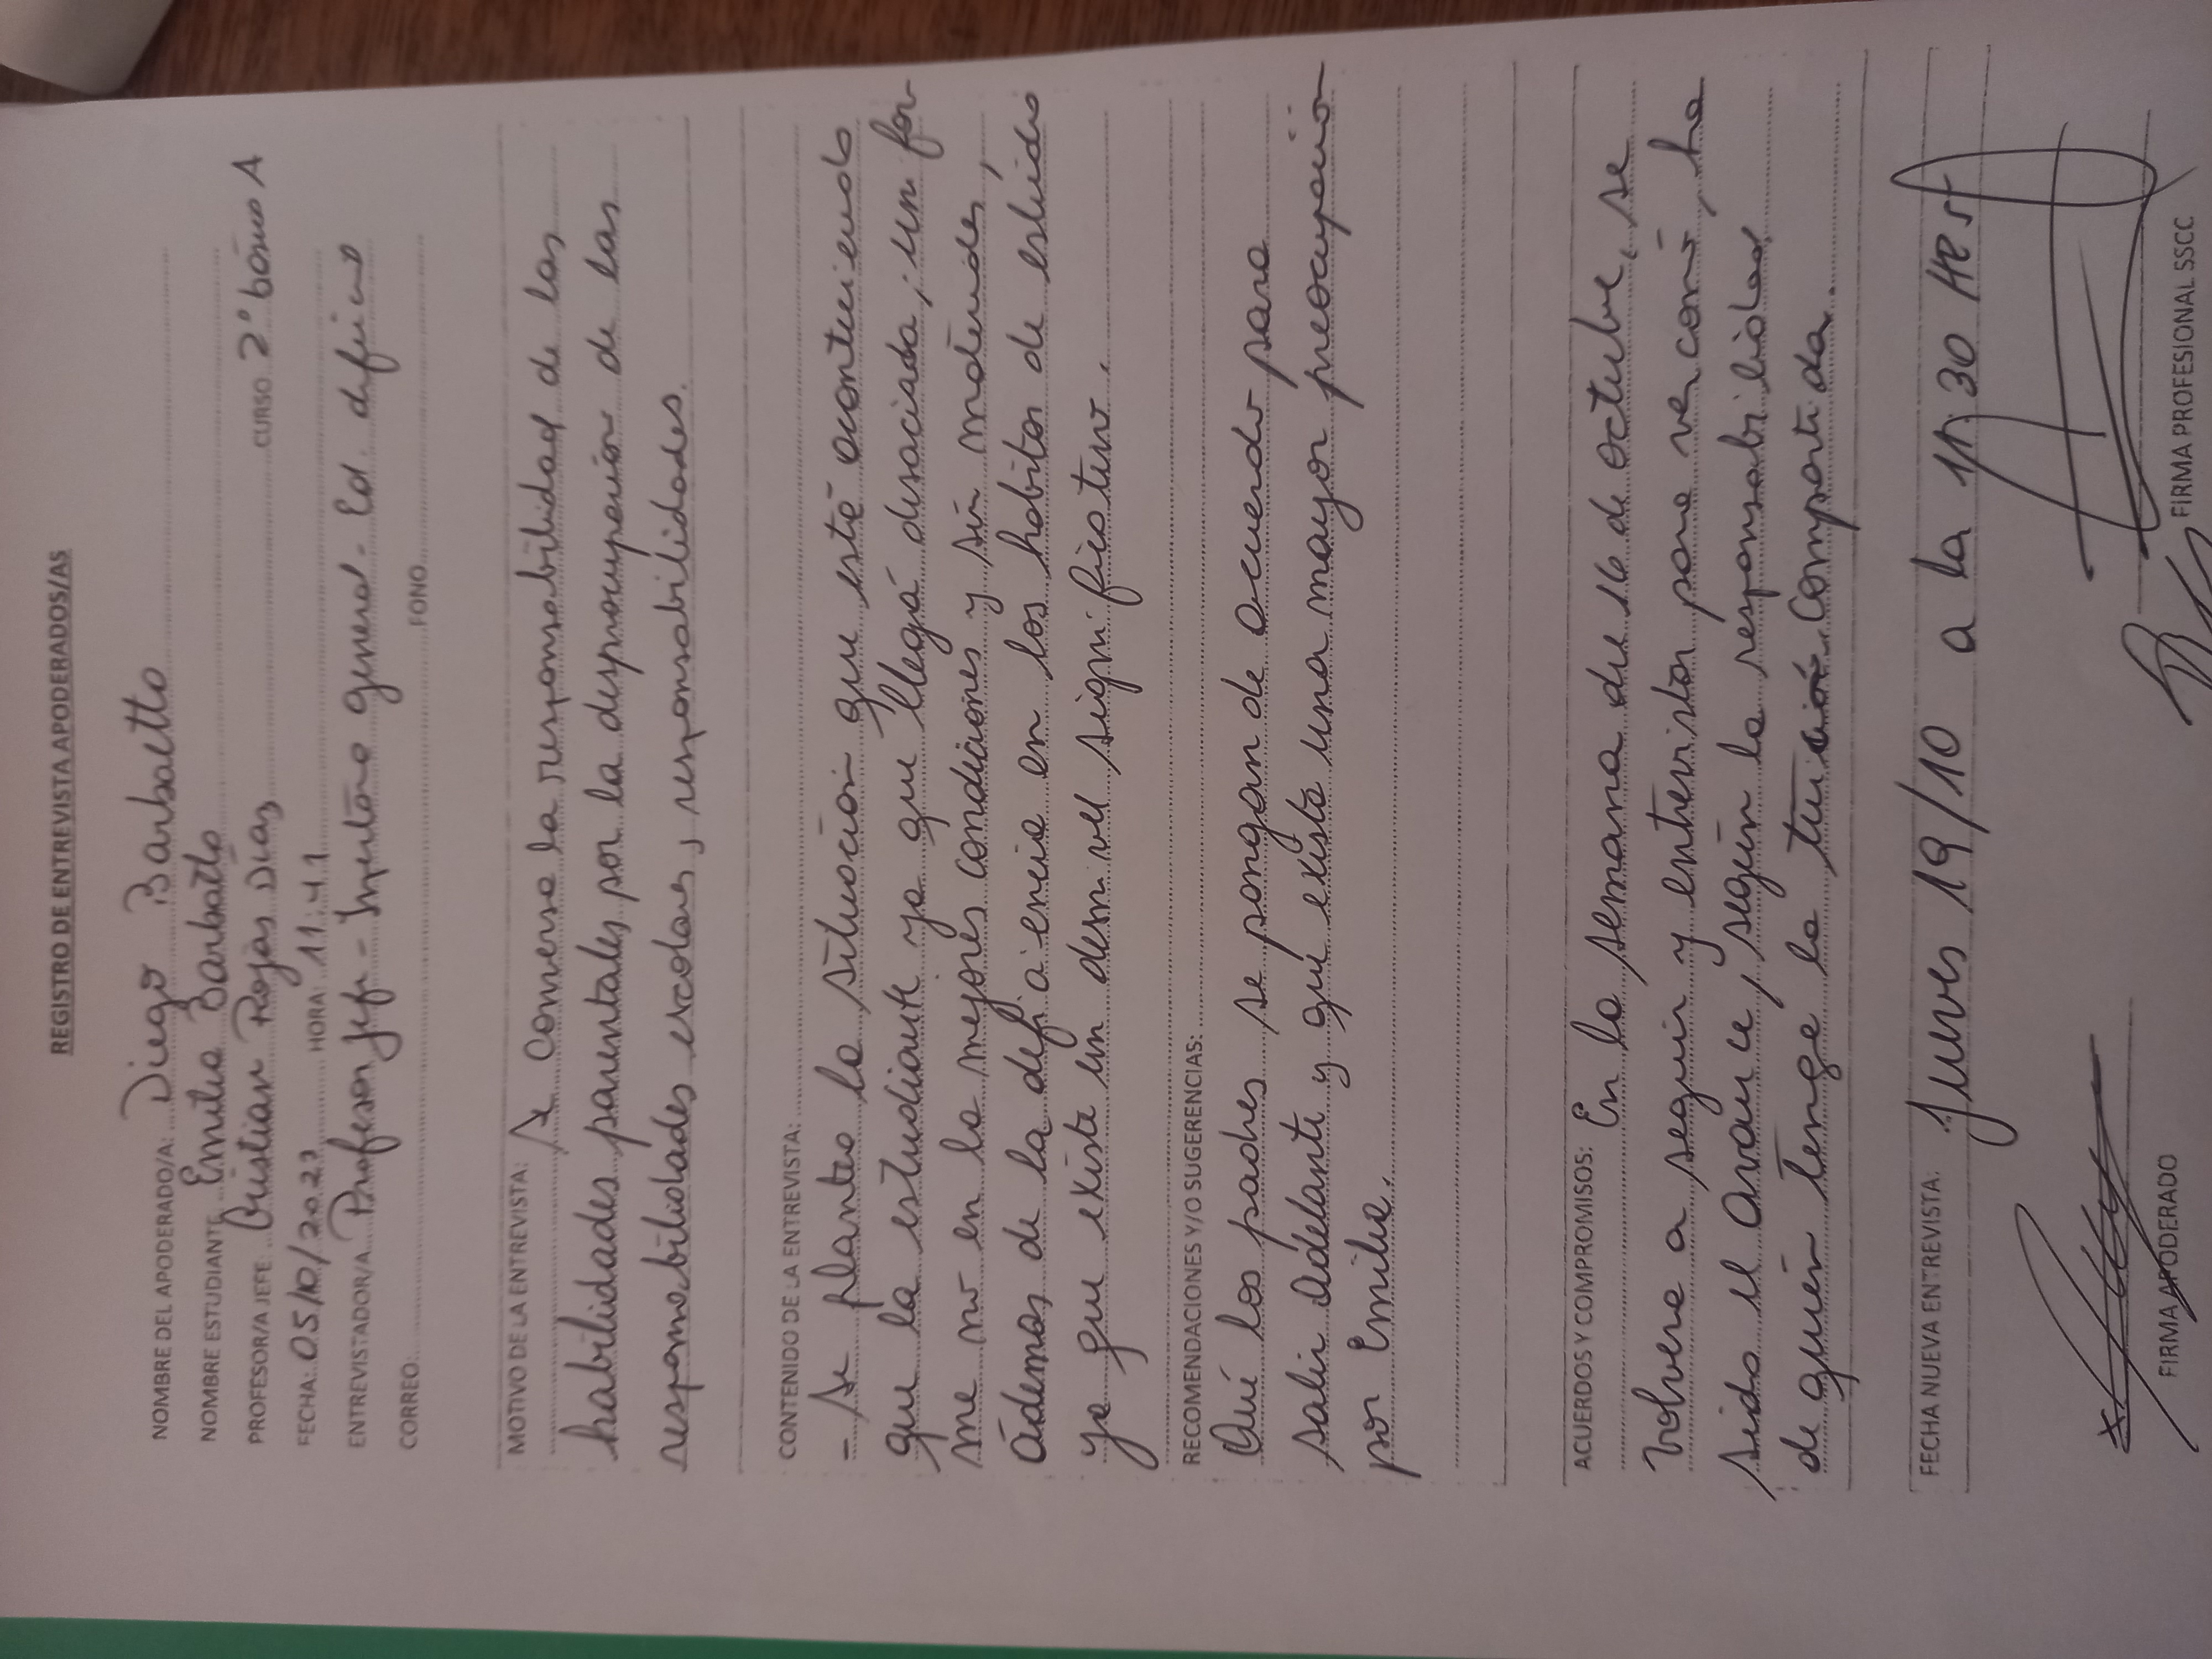 REGISTRO DE ENTREVISTA APODERADOS/AS
NOMBRE DEL APODERADO/A: Diego Barbaetto
NOMBRE ESTUDIANTE Emilia Barbatto
PROFESOR/A JEFE: Cristian Rojas Días CURSO 2° básico A
FECHA: 05/10/2023 HORA: 11:41
ENTREVISTADOR/A Profesor jefe - general - Ed.
CORREO: FONO
MOTIVO DE LA ENTREVISTA: Se conversa la responsabilidad de las
habilidades parentales por la despreocupación de las
responsabilidades escolares y responsabilidades.
CONTENIDO DE LA ENTREVISTA:
- Se plantea la situación que esté aconteciendo
que la estudiante ya que llega desaciada, un for
me no en la mejores condiciones y sin materiales,
Además de la deficiencia en los habitos de estudio
ya que existe un desnivel significativo.
RECOMENDACIONES Y/O SUGERENCIAS:
Que los padres se pongan de acuerdo para
salir adelante y que exista una mayor preocupación
por Emilia.
ACUERDOS Y COMPROMISOS: En la semana del 16 de octubre, se
volvera a seguir y entrevistar para ver como, ha
sido el avance, según la responsabilidad
de quien tenga la tuición compartida.
FECHA NUEVA ENTREVISTA: Jueves 19/10 a la 30 HRS
FIRMA APODERADO FIRMA PROFESIONAL SSCC